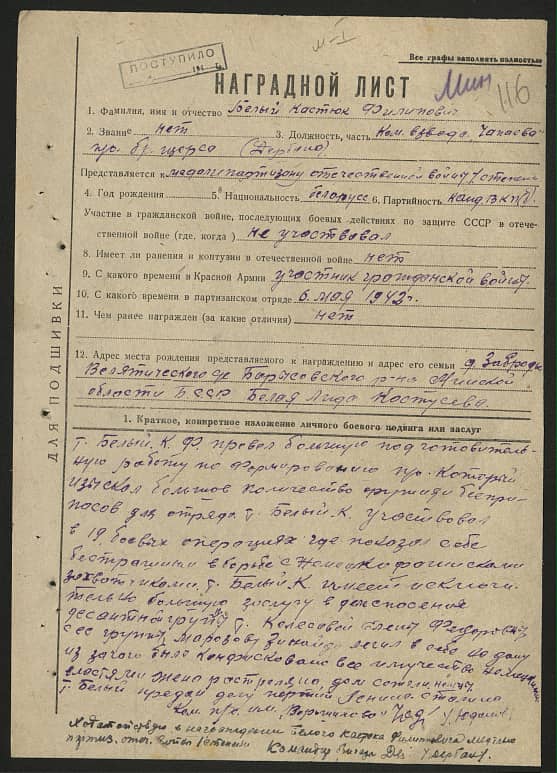 М-I
ПОСТУПИЛО
Все графы заполнять полностью
НАГРАДНОЙ ЛИСТ
Мин
116
1. Фамилия, имя и отчество Белый Кастюк Филипович
2. Звание нет 3. Должность, часть Ком. взвода, Чапаева
бр. щорса
Представляется к медали партизану отечественной войны I степени
4. Год рождения 5. Национальность белорусс 6. Партийность Канд. ВКП/б/
Участие в гражданской войне, последующих боевых действиях по защите СССР в отече-
ственной войне (где, когда) не участвовал
8. Имеет ли ранения и контузии в отечественной войне нет
9. С какого времени в Красной Армии участник гражданской войны.
10. С какого времени в партизанском отряде 6. мая 1942 г.
11. Чем ранее награжден (за какие отличия) нет
12. Адрес места рождения представляемого к награждению и адрес его семьи д. Заброды
Велятического с/с Борисовского р-на Минской
области БССР Белая Лида Костусева.
ДЛЯ ПОДШИВКИ
1. Краткое, конкретное изложение личного боевого подвига или заслуг
т. Белый К. Ф. провел большую подготовитель-
ную работу по формированию п/о. Который
изыскал большое количество оружия и боепри-
пасов для отряда. т. Белый К. участвовал
в 19 боевых операциях где показал себя
бесстрашным в борьбе с Немецко фашискими
захватчиками. т. Белый К имеет исключи-
тельно большую заслугу в
десантной группы т. Колесовой Елены Федоровны
с ее группы Марозову Зинаиду лечил в себя на дому
из за чего было конфисковано все имущество немецкими
властями жена растреляна, дом сожгли немцы
т. Белый предан делу партии Ленина Сталина
Ком. п/о. им. "Ворошилова"
Ходатайствую о награждении Белого Кастюка Филиповича медалью
партиз. отеч. войны I степени Командир бригады